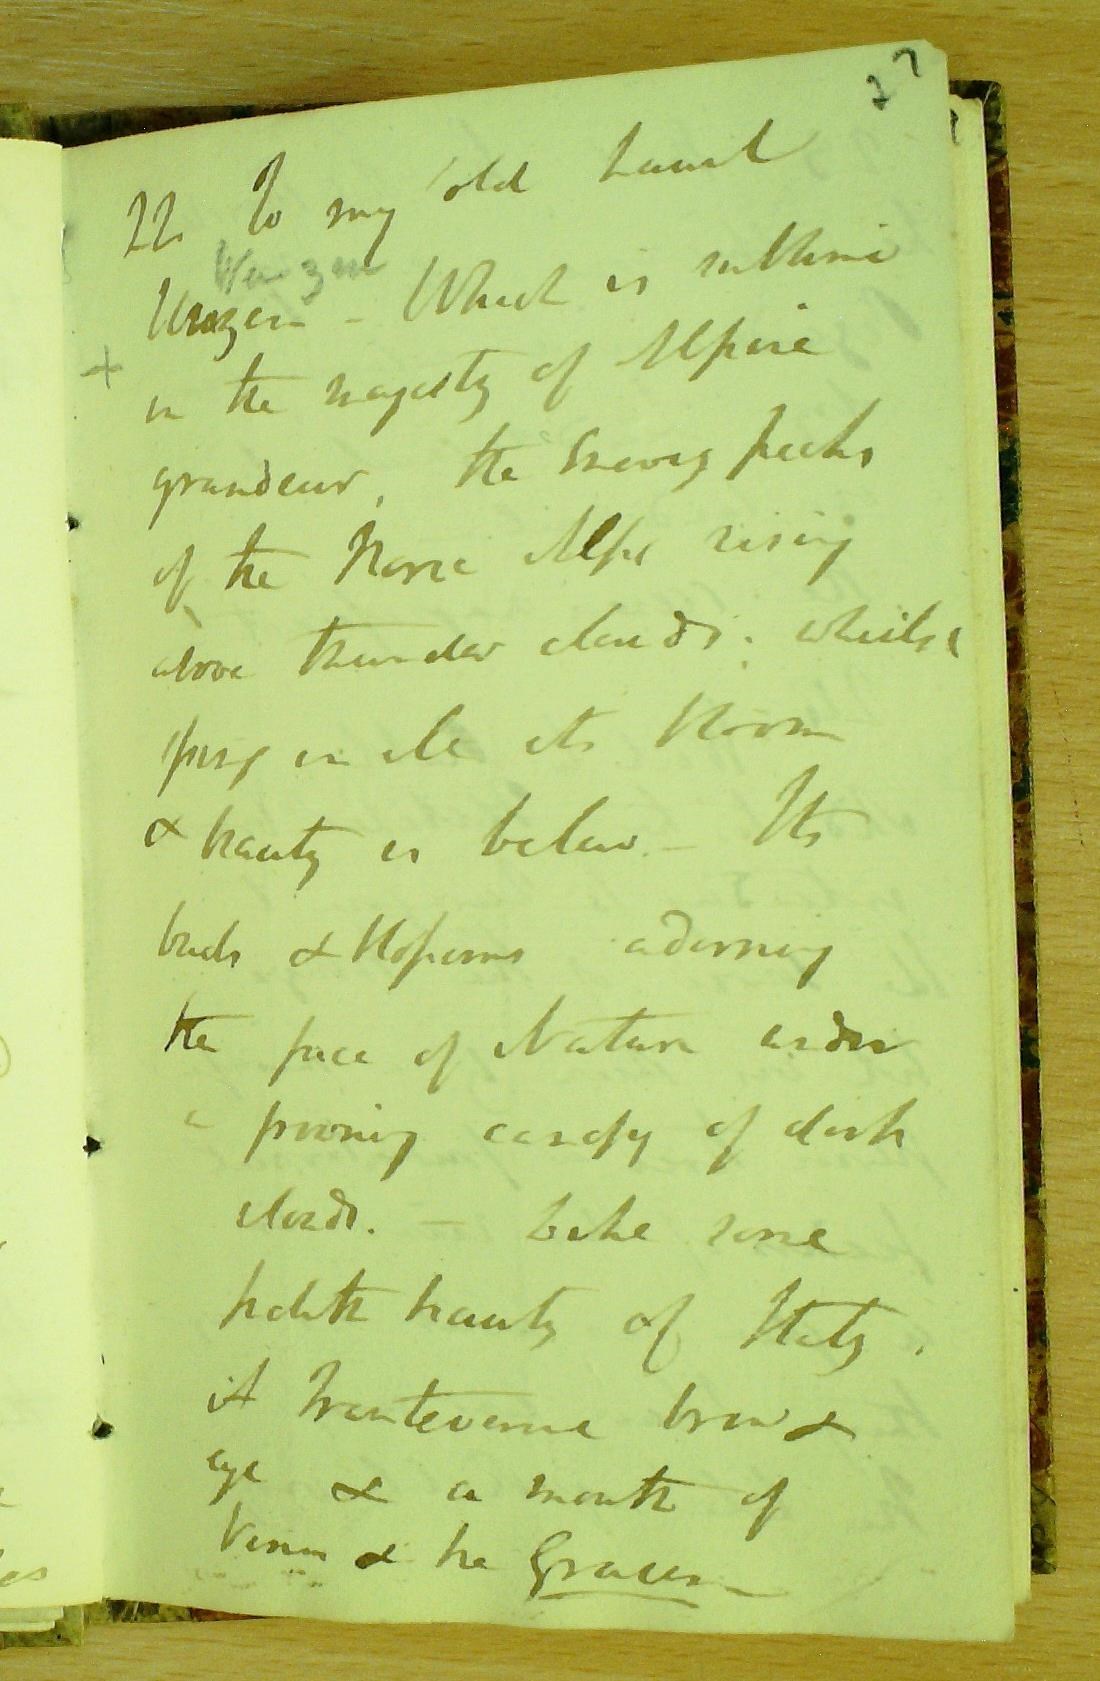 27
22 To my old haunt
Wurzen
Wurzen - Which is sublime
+
in the majesty of Alpine
grandeur, the snowy peaks
of the Noric Alps rising
above thunder clouds. whilst
spring in all its bloom
& beauty is below - Its
buds & blossoms adorning
the face of Nature under
a frowning canopy of dark
clouds. - Like some
beauty of Italy,
brow &
eye & a mouth of
Venus & the Graces